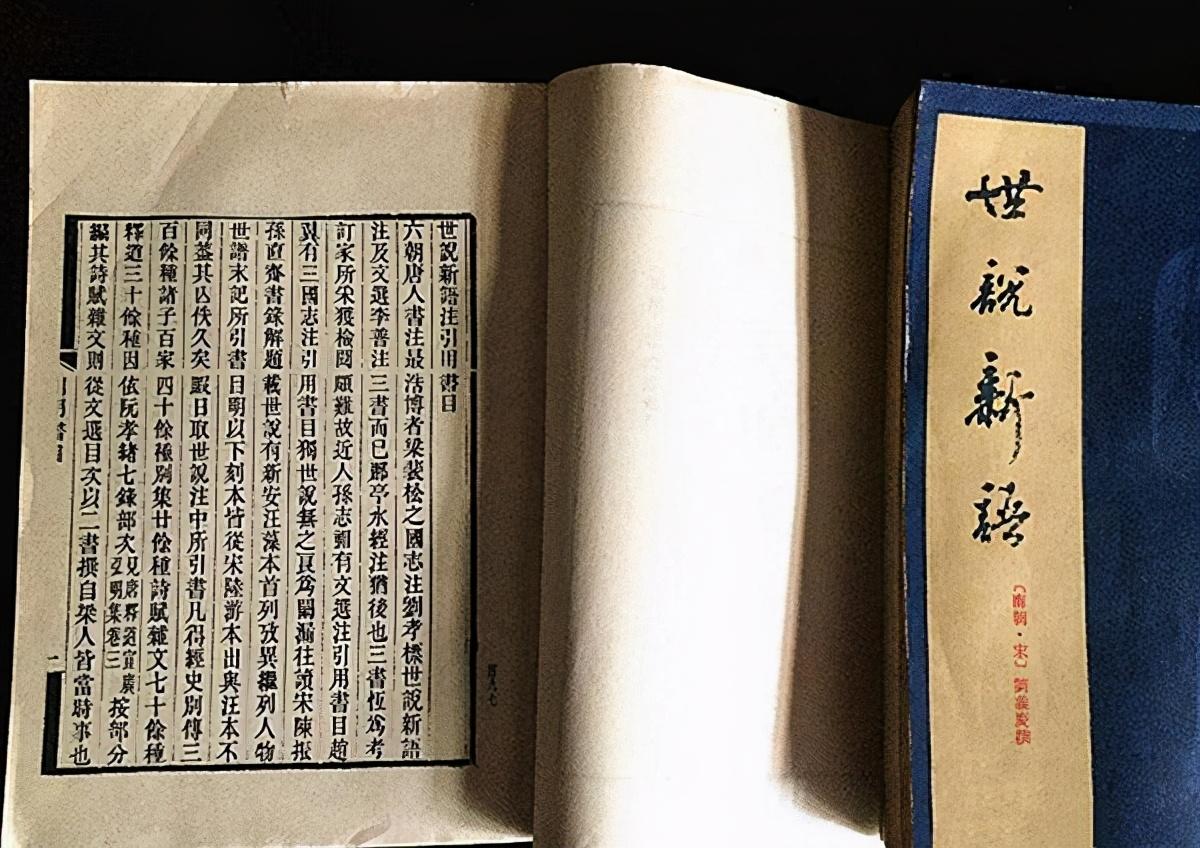 世說新語
〔南朝·宋〕劉義慶撰
世說新語注引用書目
六朝唐人書注最浩博者梁裴松之國志注劉孝標世說新語
注及文選李善注三書而已酈亭水經注猶後也三書恆爲考
訂家所宋獲檢閱頗難故近人孫志祖有文選注引用書目趙
翼有三國志注引用書目獨世說無之良爲闕漏往讀宋陳振
孫直齋書錄解題載世說有新安汪藻本首列攷異繼列人物
世譜末記所引書目明以下刻本皆從宋陸游本出與汪本不
同葢其亡佚久矣暇日取世說注中所引書凡得經史別傳三
百餘種諸子百家四十餘種別集廿餘種詩賦雜文七十餘種
釋道三十餘種因依阮孝緒七錄部次見唐釋道宣廣弘明集卷三按部分
編其詩賦雜文則從文選目次以二書撰自梁人皆當時事也